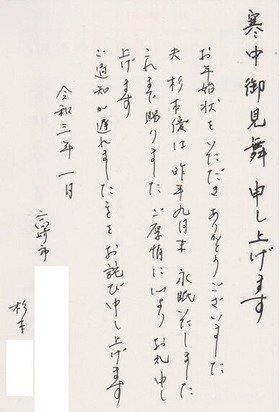 寒中御見舞 申し上げます
お年始状をいただき ありがとうございました
夫 杉本優は 昨年九月末 永眠いたしました
これまで賜りました ご厚情に心よりお礼申し
上げます
ご通知が遅れましたことをお詫び申し上げます
令和三年 一月
高崎市
杉本